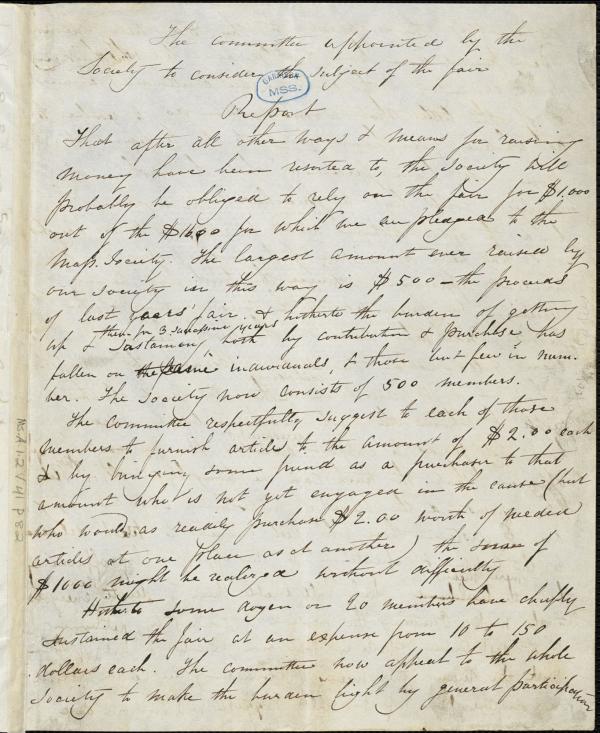 The committee appointed by the
Society to consider the subject of the fair
GARRISON
MSS.
Report
That after all other ways & means for raising
money have been resorted to, the Society will
probably be obliged to rely on the fair for $1,000
out of the $1600 for which we are pledged to the
Mass. Society. The largest amount ever raised by
our society in this way is $500 – the proceeds
of last years' fair. & hitherto the burden of getting
them for 3 successive years
up & sustaining, both by contribution & purchase, has
fallen on the same individuals, & those but few in num-
ber. The Society now consists of 500 members.
The Committee respectfully suggest to each of those
members to furnish articles to the amount of $2.00 each
& by bringing some friend as a purchaser to that
amount who is not yet engaged in the cause (but
who would as readily purchase $2.00 worth of needed
articles at one place as at another) the sum of
$1000 might be realized without difficulty
Hitherto some dozen or 20 members have chiefly
sustained the fair at an expense from 10 to 150
dollars each. The committee now appeal to the whole
Society to make the burden light by general participation
Ms.A.1.2 V.41 P.82